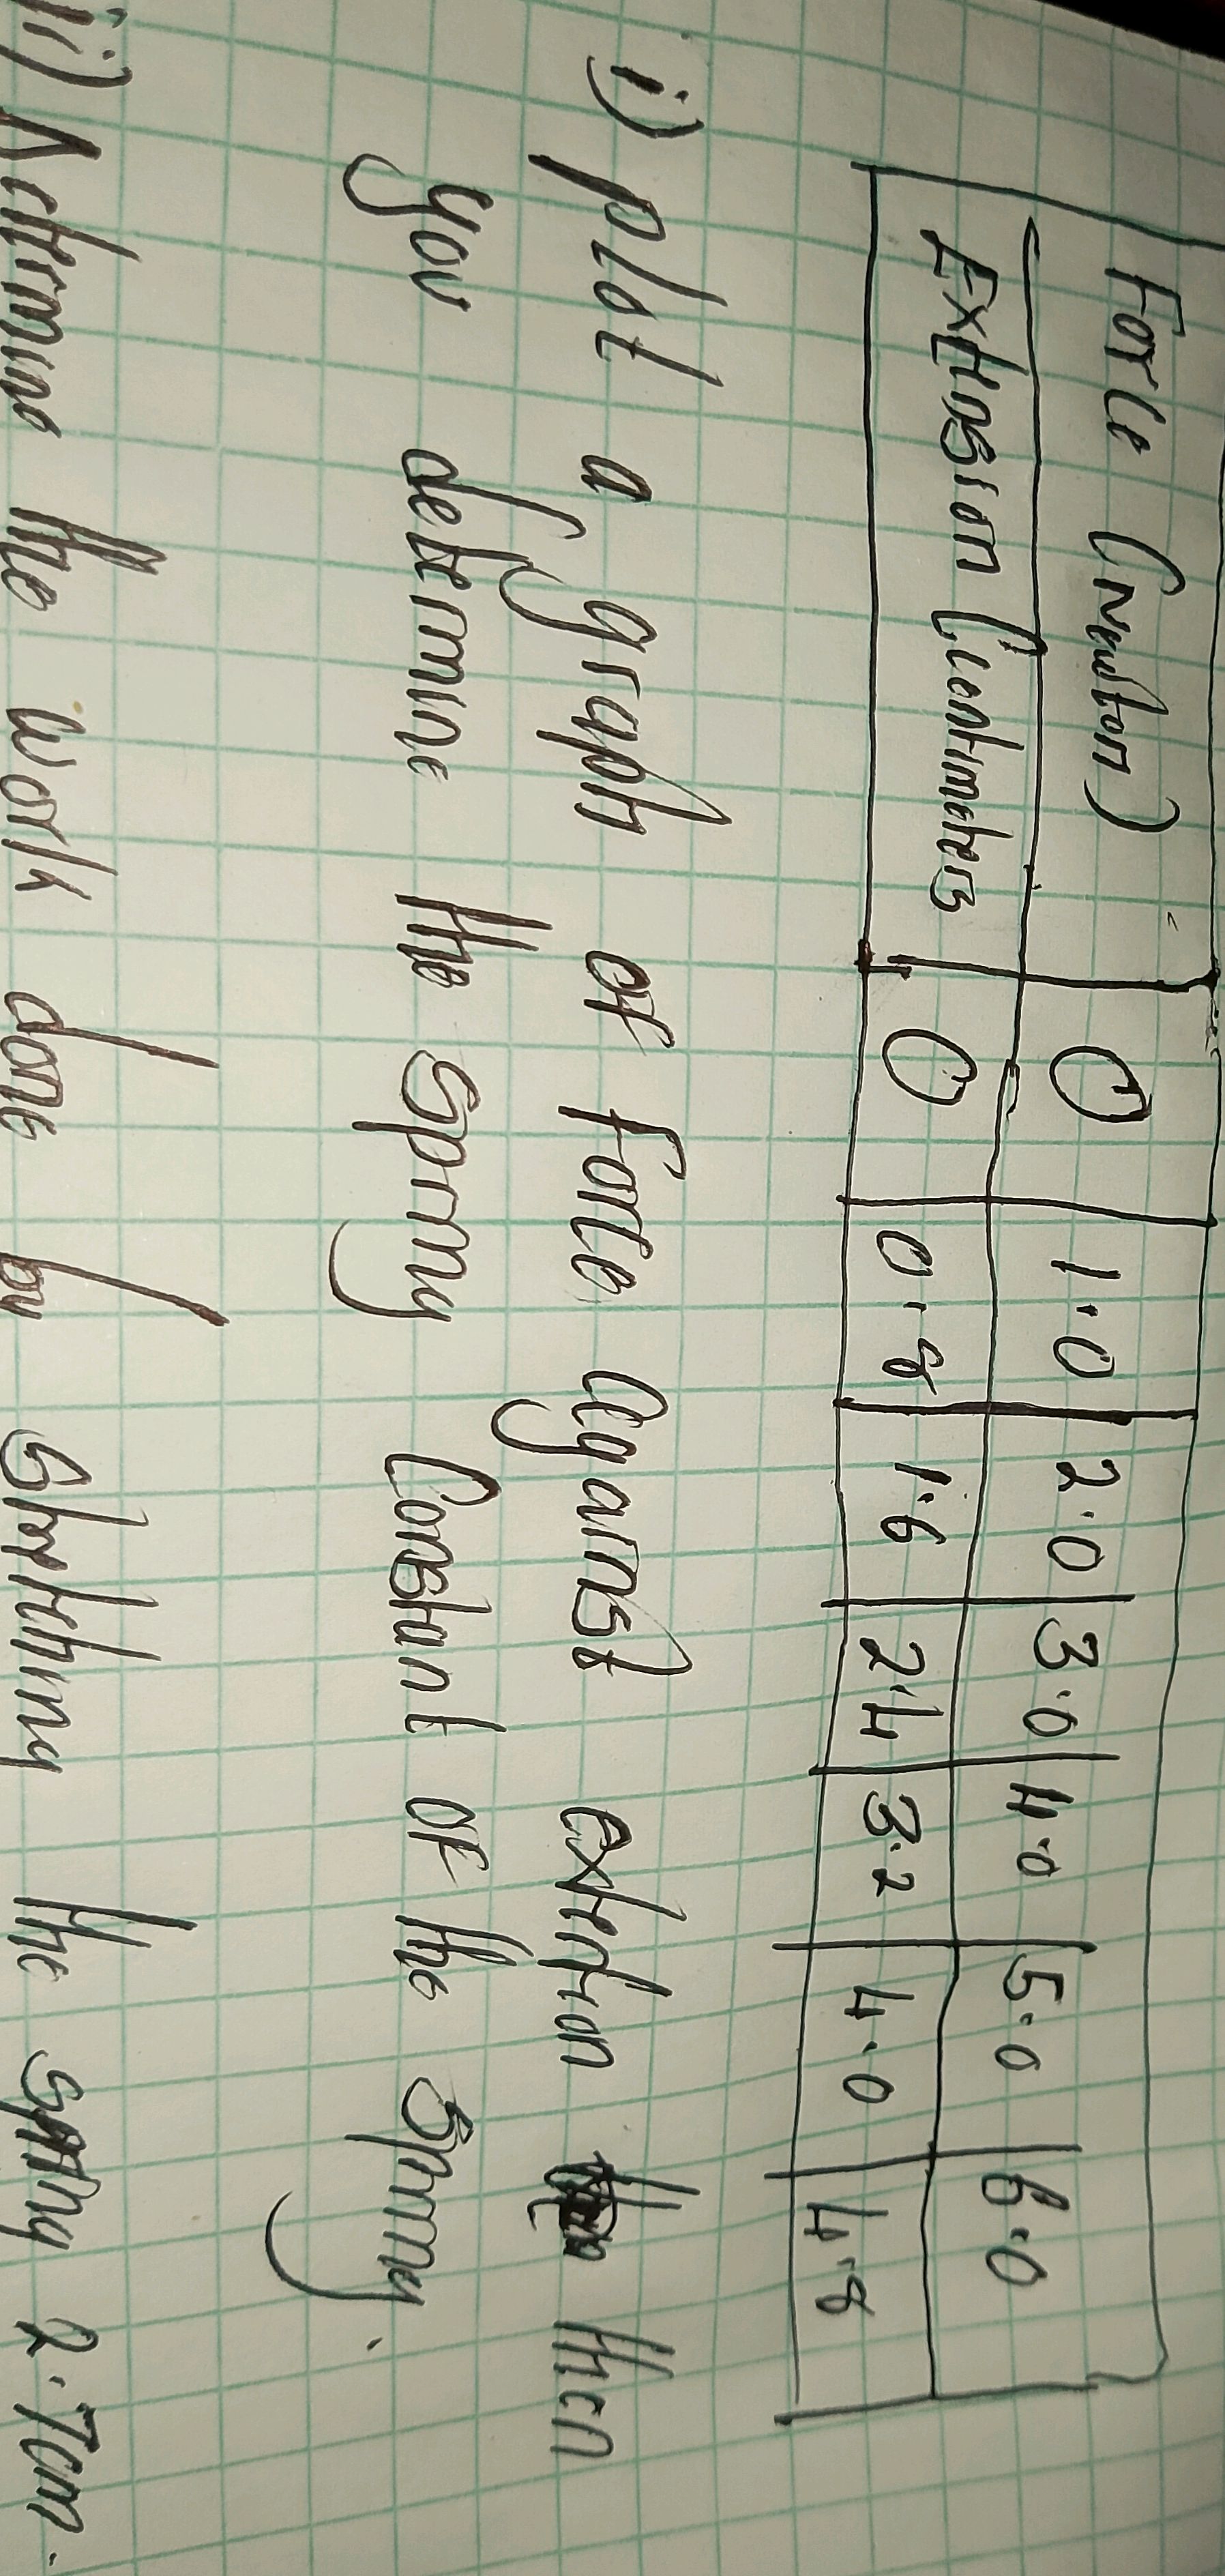 Force (Newton) 0 1.0 2.0 3.0 4.0 5.0 6.0
Extension (centimeters 0 0.8 1.6 2.4 3.2 4.0 4.8
i) plot a graph of force against extention then
you determine the spring constant of the spring.
ii) Determine the work done by stretching the spring 2.7cm.